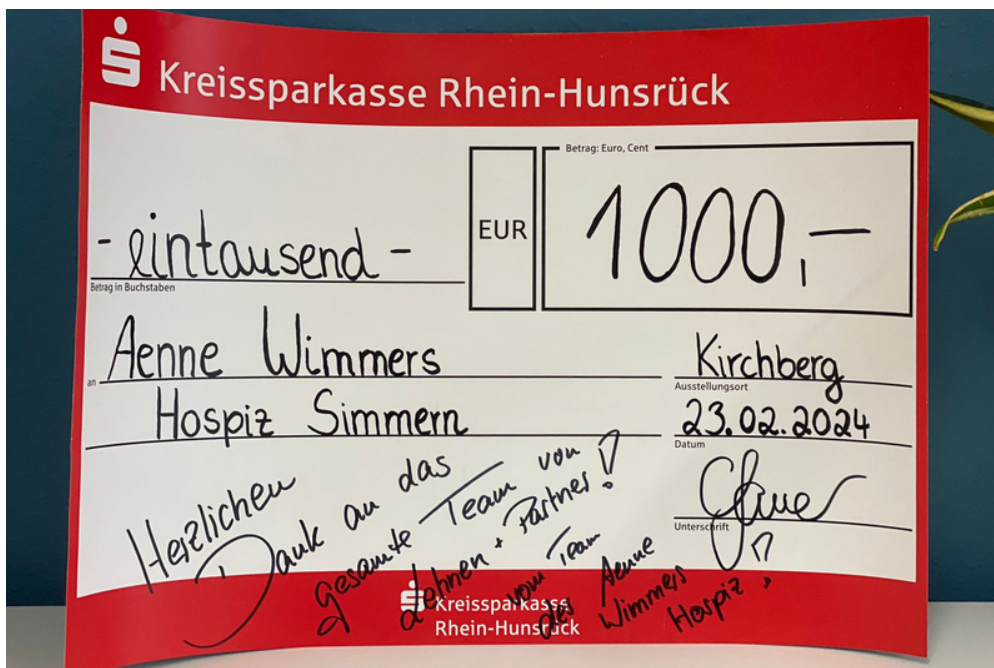 Kreissparkasse Rhein-Hunsrück
Betrag: Euro, Cent
- eintausend -
EUR
1000,-
Betrag in Buchstaben
an Aenne Wimmers
Hospiz Simmern
Kirchberg
Ausstellungsort
23.02.2024
Datum
Unterschrift
Herzlichen
Dank an das
gesamte Team von
Dehnen + Partner!
vom Team
des Aenne
Wimmers
Hospiz!
Kreissparkasse
Rhein-Hunsrück